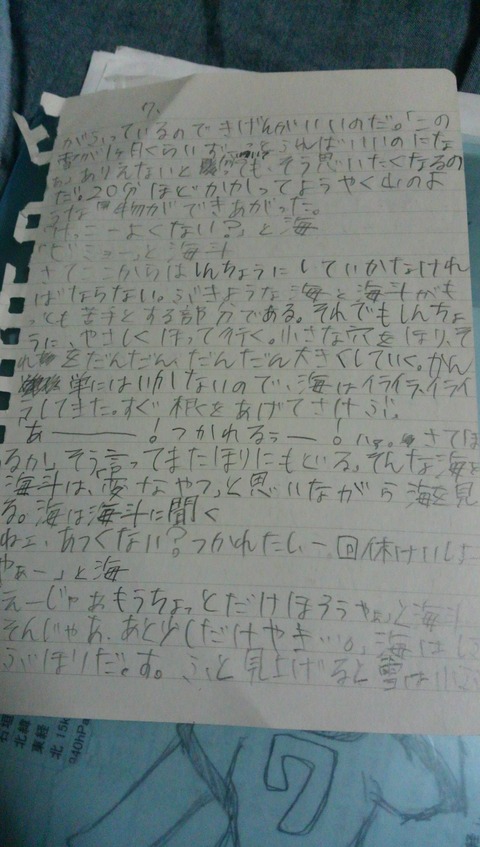 7.
がふっているのできげんがいいのだ。「この
雪が1ヶ月くらいずーっとふればいいのにな
ぁ。ありえないと思っても、そう思いたくなるの
だ。20分ほどかかってようやく山のよ
うな物ができあがった。
「けっこーよくない?」と海
「ビミョー」と海斗
さてここからはしんちょうにしていかなけれ
ばならない。ぶきような海と海斗がも
っとも苦手とする部分である。それでもしんちょ
うに、やさしくほって行く。小さな穴をほり、そ
れをだんだん、だんだん大きくしていく。かん
単にはいかないので、海はイライラ、イライ
ラしてきた。すぐ根をあげてさけぶ。
「あ――――!つかれるぅー!ハァ。さてほ
るか」そう言ってまたほりにもどる。そんな海を
海斗は、「変なやつ」と思いながら海を見
る。海は海斗に聞く
ねェ、あつくない?つかれたしー。回休けいしよ
やぁー」と海
えーじゃぁもうちょっとだけほろうゃ」と海斗
そんじゃぁ、あと少しだけやき 海はし
ぶほりだす。ふと見上げると雪は小
石垣
北緯
東経
北 15k
940hPa